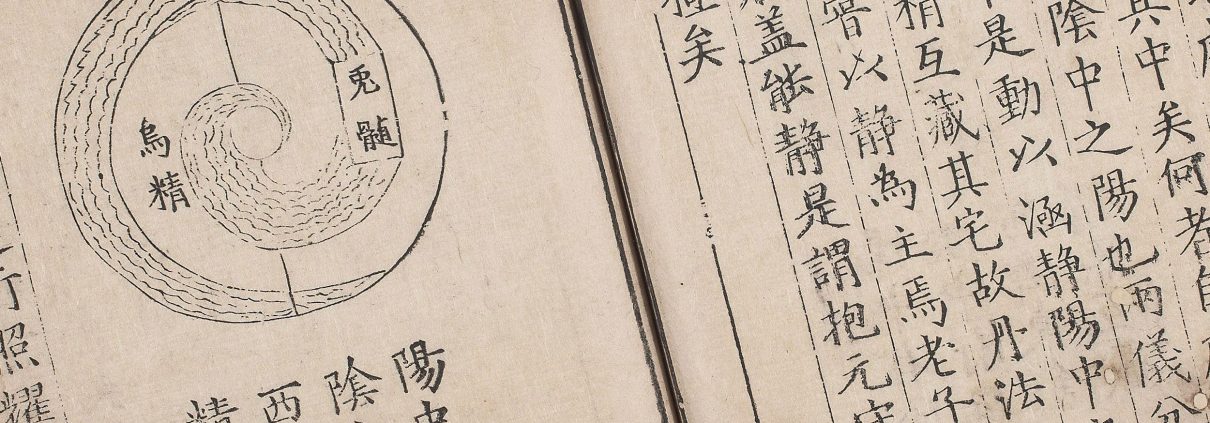 其中矣何者自
陰中之陽也兩儀分
是動以涵静陽中
精互藏其宅故丹法
以静為主焉老子
蓋能静是謂抱元守
極矣
兎髄
烏精
陽中
陰
西
精
行照耀